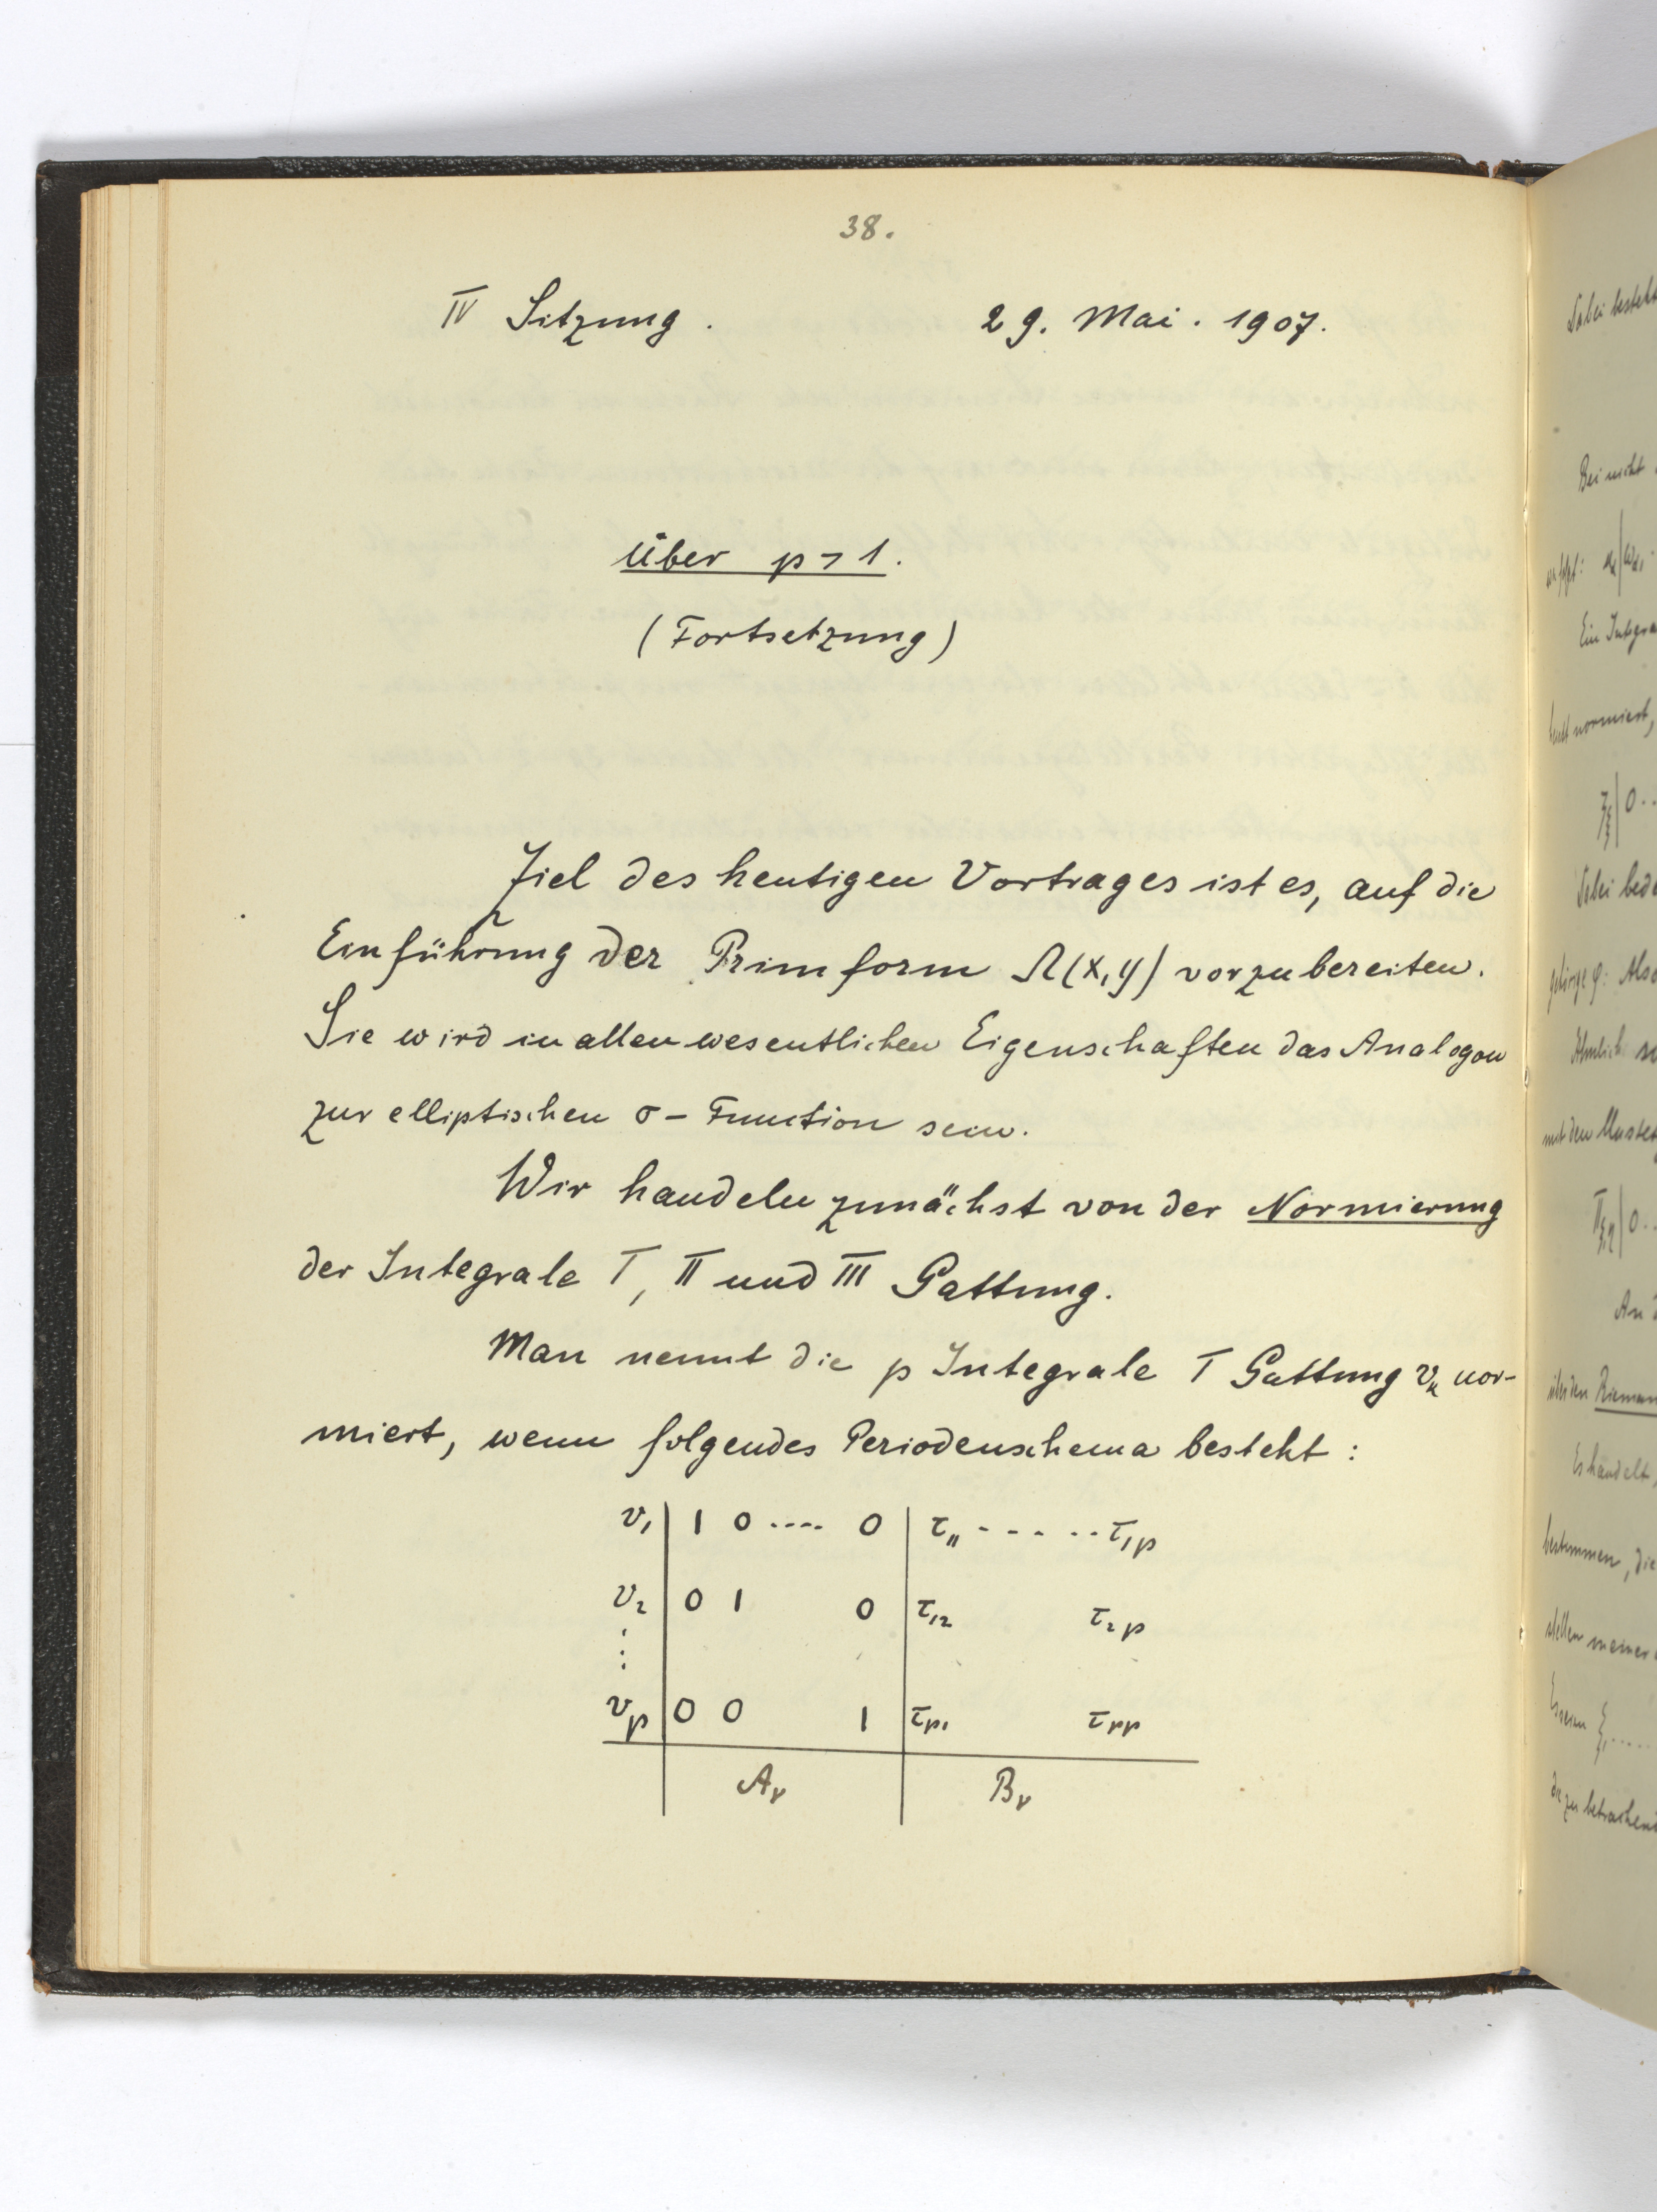 38.
IV Sitzung. 29. Mai. 1907.
Über p > 1.
(Fortsetzung)
Ziel des heutigen Vortrages ist es, auf die
Einführung der Primform Ω(x,y) vorzubereiten.
Sie wird in allen wesentlichen Eigenschaften das Analogon
zur elliptischen σ-Function sein.
Wir handeln zunächst von der Normierung
der Integrale I, II und III Gattung.
Man nennt die p Integrale I Gattung v_k nor-
miert, wenn folgendes Periodenschema besteht:
v₁ | 1 0 .... 0 | τ₁₁ - - - - · -- τ₁p
v₂ | 0 1 0 | τ₁₂ τ₂p
⋮
v_p | 0 0 1 | τ_p₁ τ_pp
A_ν | B_ν
Dabei besteht
Bei nicht
Ein Integra
normiert,
ξ | 0 ..
Dabei bede
gehörige φ: Also
Ähnlich
mit den Muster
Π_ξη | 0 ..
An
über den Rieman
Es handelt,
bestimmen, die
stellen meiner
Es seien ξ₁.....
die zu betrachtend